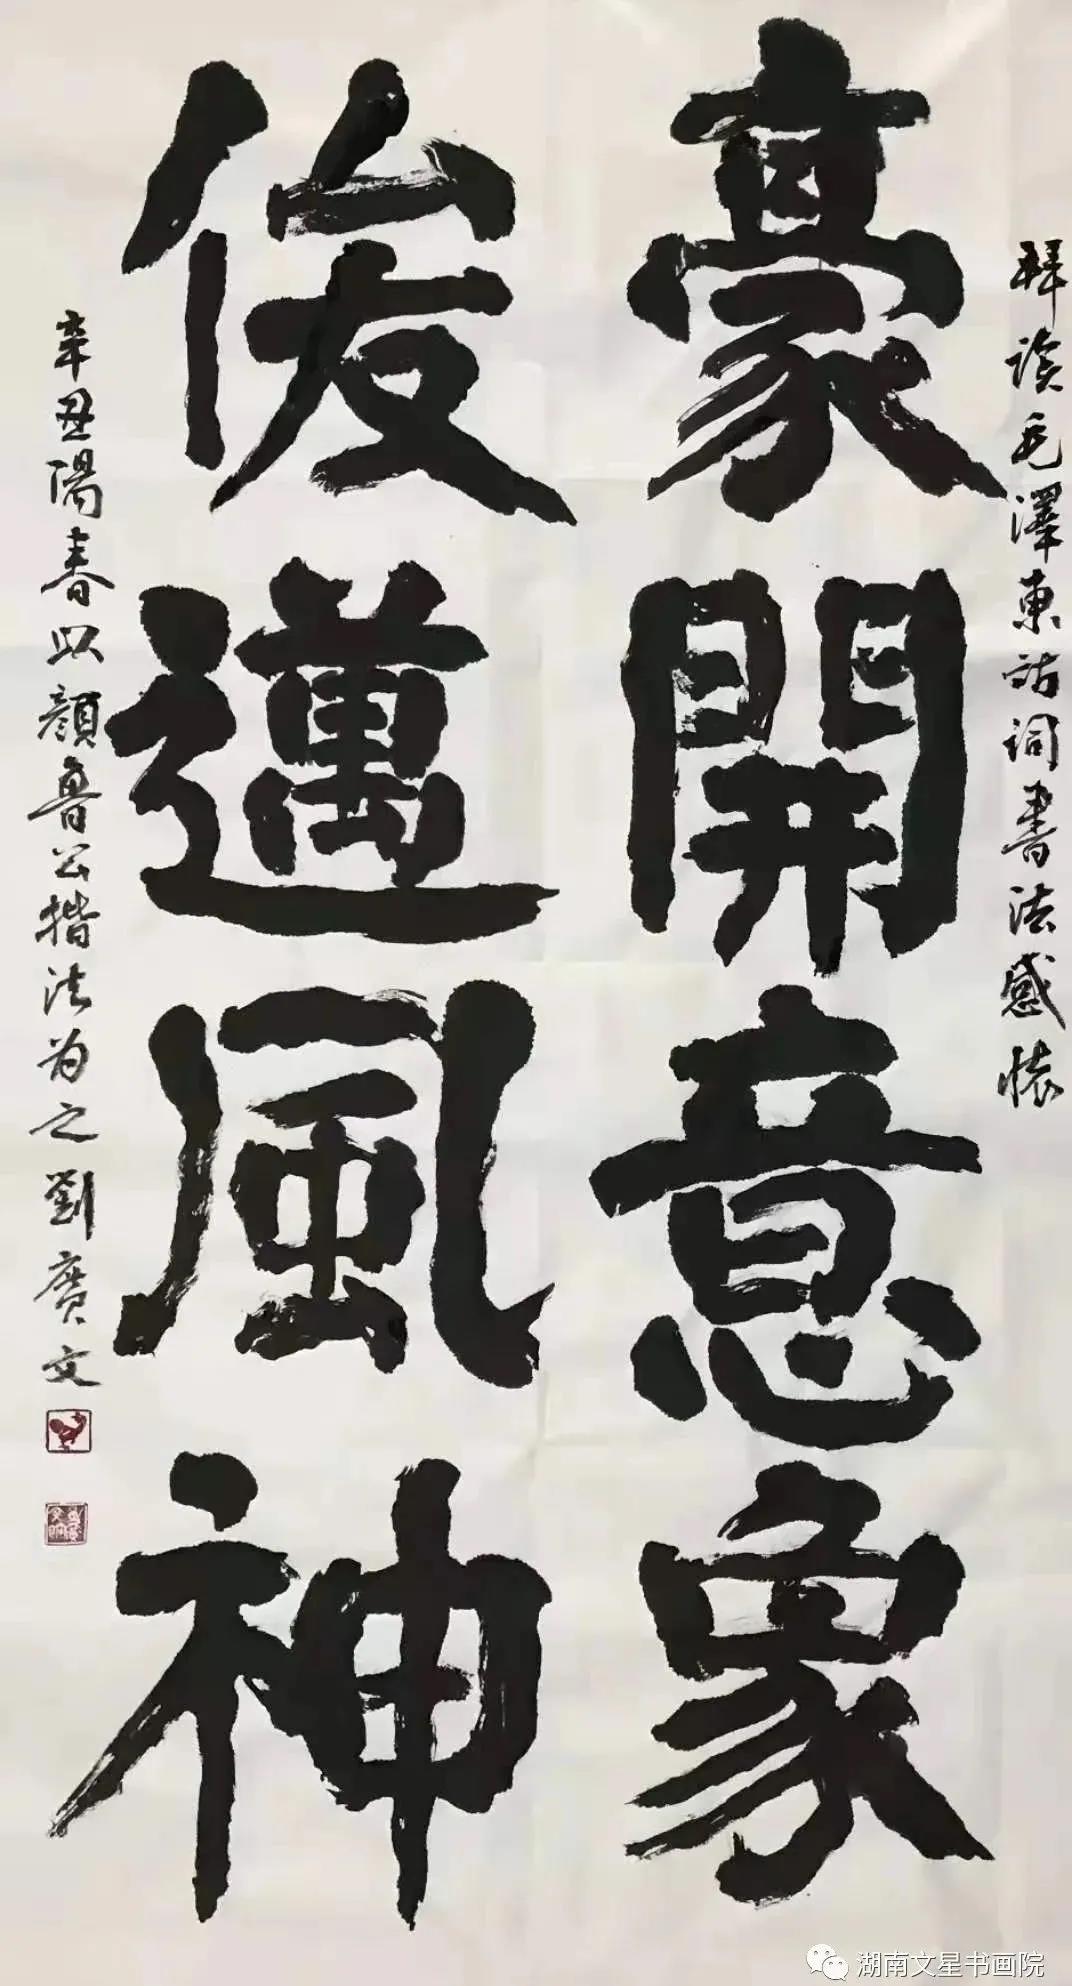 拜读毛澤東詩词書法感懷
豪開意象
俊邁風神
辛丑陽春以顏魯公楷法为之劉廣文
湖南文星书画院